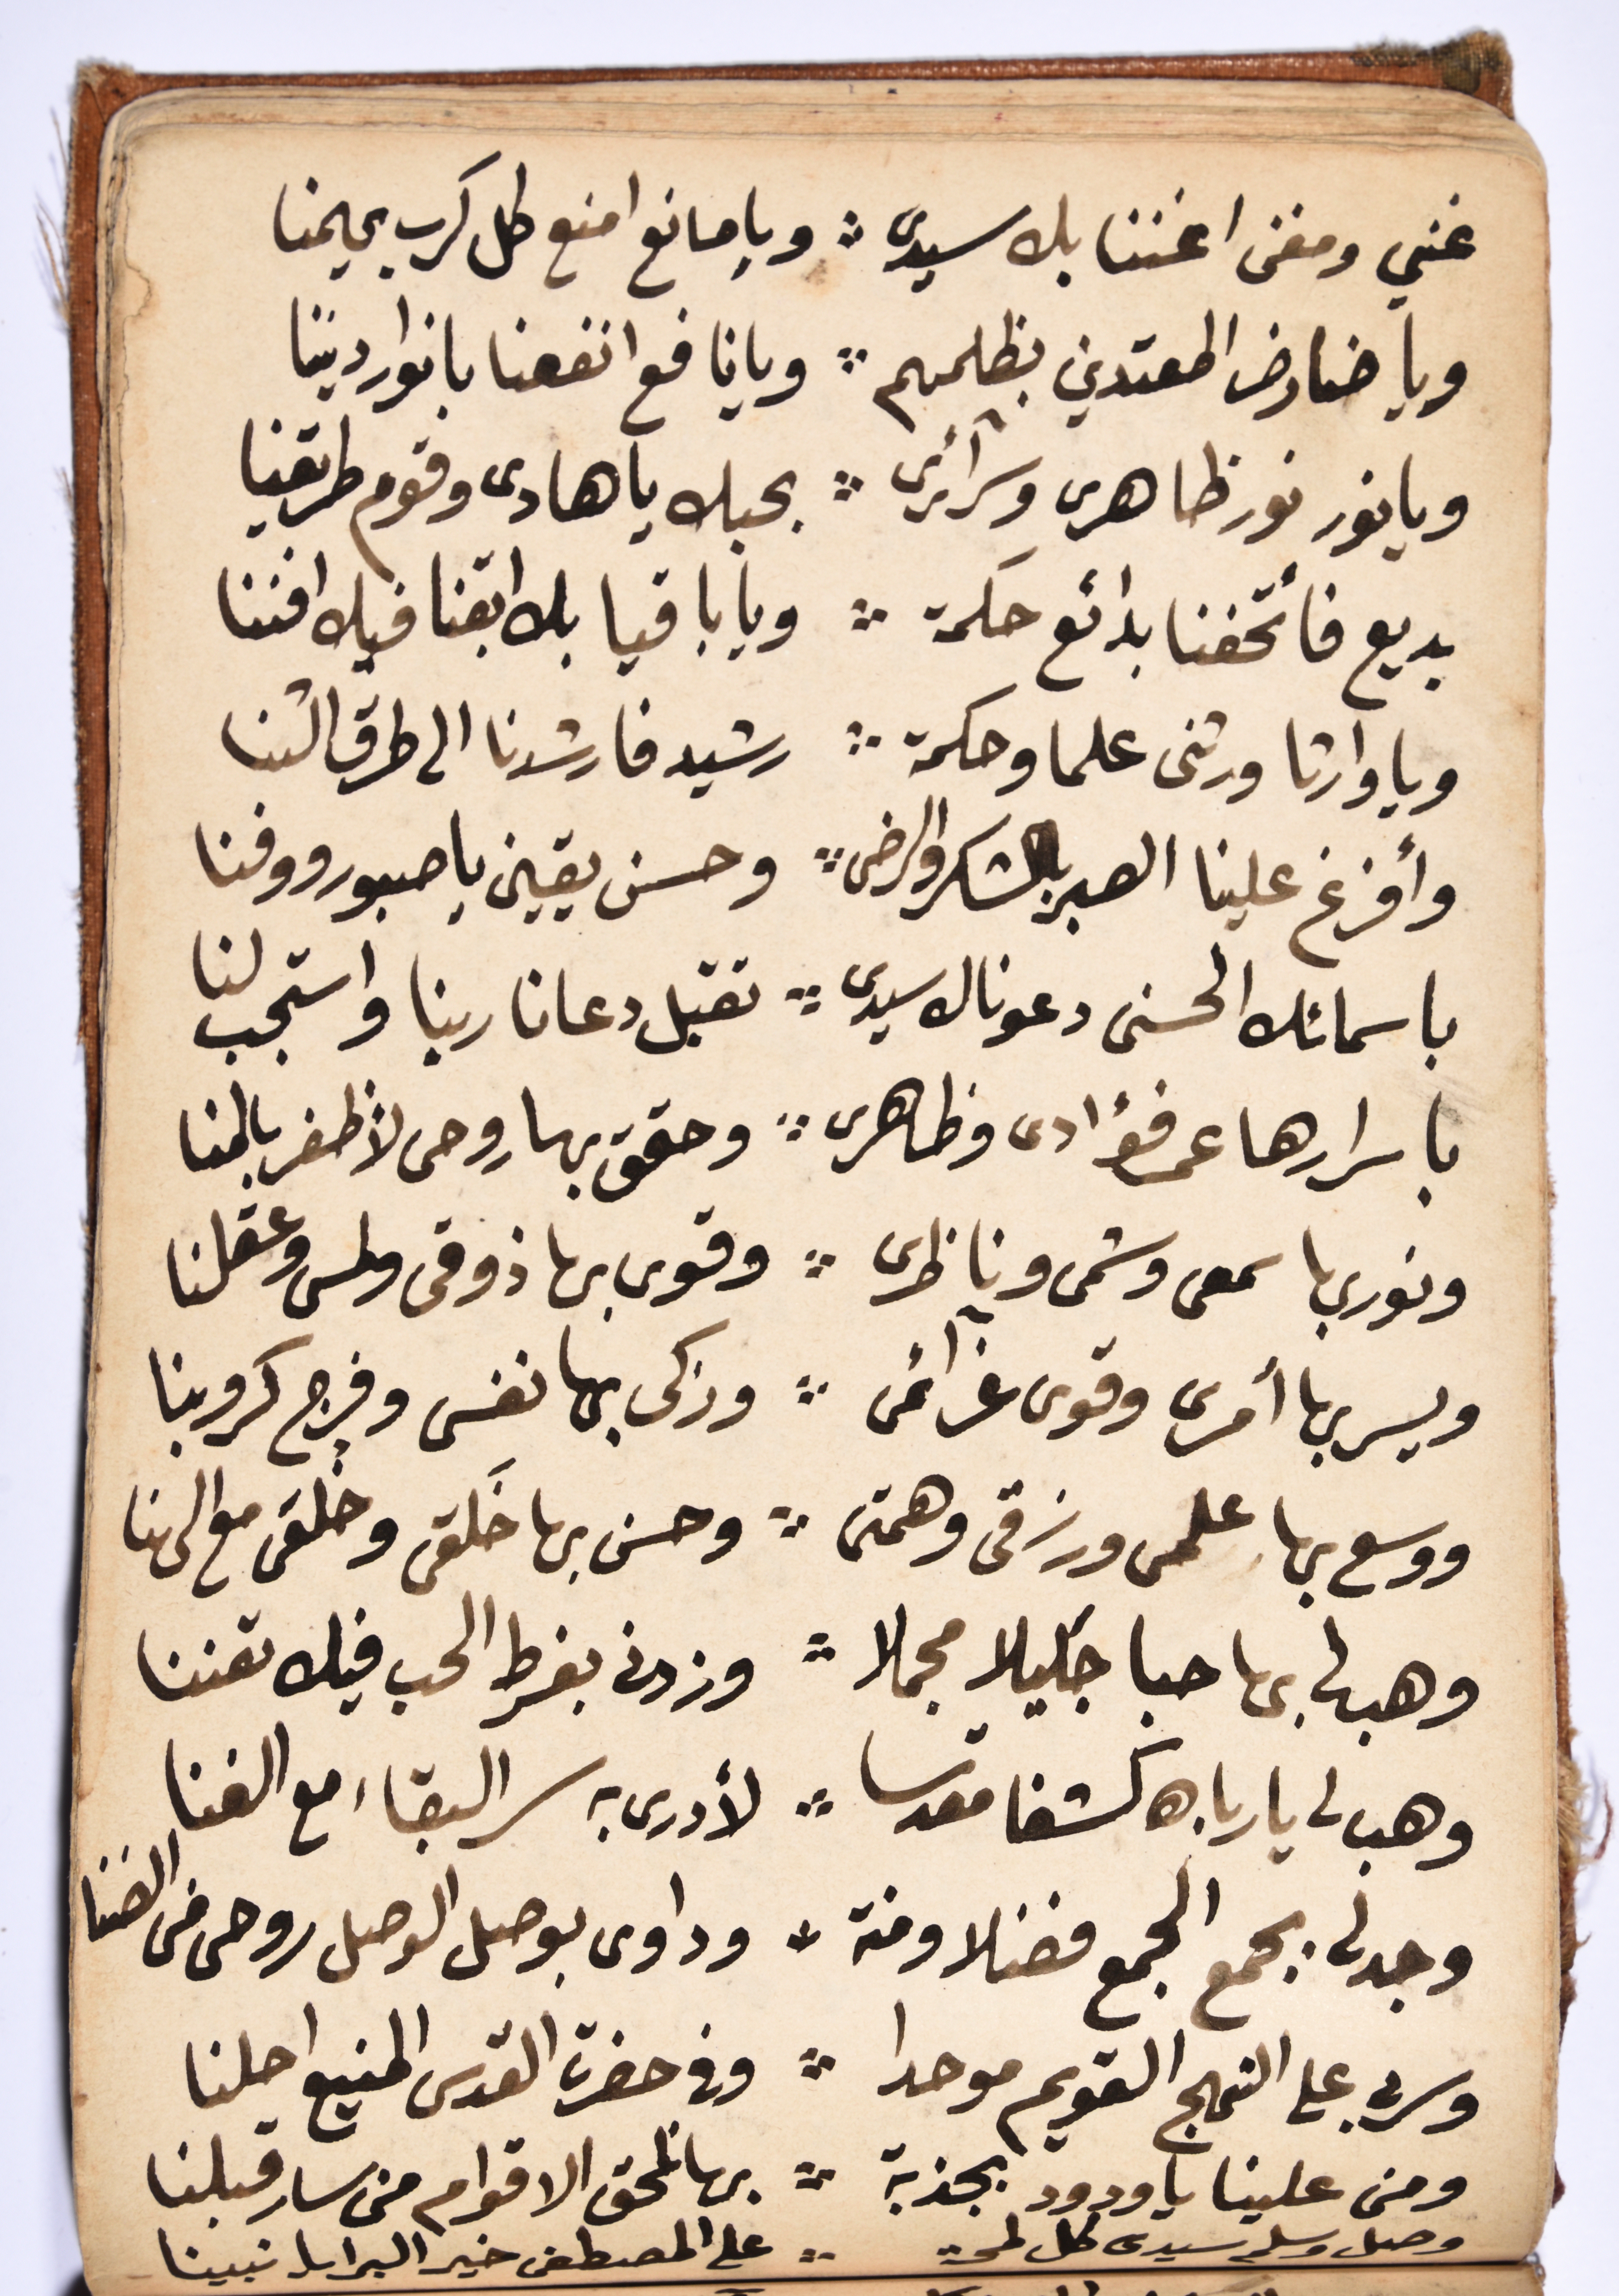 غني ومغنى اغننا بك سيدى ∴ ويا مانع امنع كل كرب يهمنا
ويا ضار ضر المعتدين بظلمهم ∴ ويا نافع انفعنا بانوار ديننا
ويا نور نور ظاهرى وسرآئرى ∴ بحبك يا هادى وقوم طريقنا
بديع فأتحفنا بدائع حكمة ∴ ويا باقيا بك ابقنا فيك افننا
ويا وارثا ورثنى علما وحكمة ∴ رشيد فارشدنا الى طرق الثنا
وأفرغ علينا الصبر بالشكر والرضى ∴ وحسن يقين يا صبور ووفنا
باسمائك الحسنى دعوناك سيدى ∴ تقبل دعانا ربنا واستجب لنا
باسرارها عمر فؤادى وظاهرى ∴ وحقق بها روحى لأظفر بالمنا
ونور بها سمعى وشمى وناظرى ∴ وقوى بها ذوقى ولمسى وعقلنا
ويسر بها أمرى وقوى عزآئمى ∴ وزكى بها نفسى وفرج كروبنا
ووسع بها علمى ورزقى وهمتى ∴ وحسن بها خَلقى وخُلقى مع الهنا
وهب لى بها حبا جَليلا مجملا ∴ وزدنى بفرط الحب فيك تفننا
وهب لى يا رباه كشفا مقدسا ∴ لأدرى به سر البقاء مع الفنا
وجد لى بجمع الجمع فضلا ومنة ∴ وداوى بوصل الوصل روحى من الضنا
وسر بى على النهج القويم موحدا ∴ وفى حضرة القدس المنيع احلنا
ومن علينا يا ودود بجذبة ∴ بها نلحق الاقوام من سار قبلنا
وصل وسلم سيدى كل لمحة ∴ على المصطفى خير البرايا نبينا